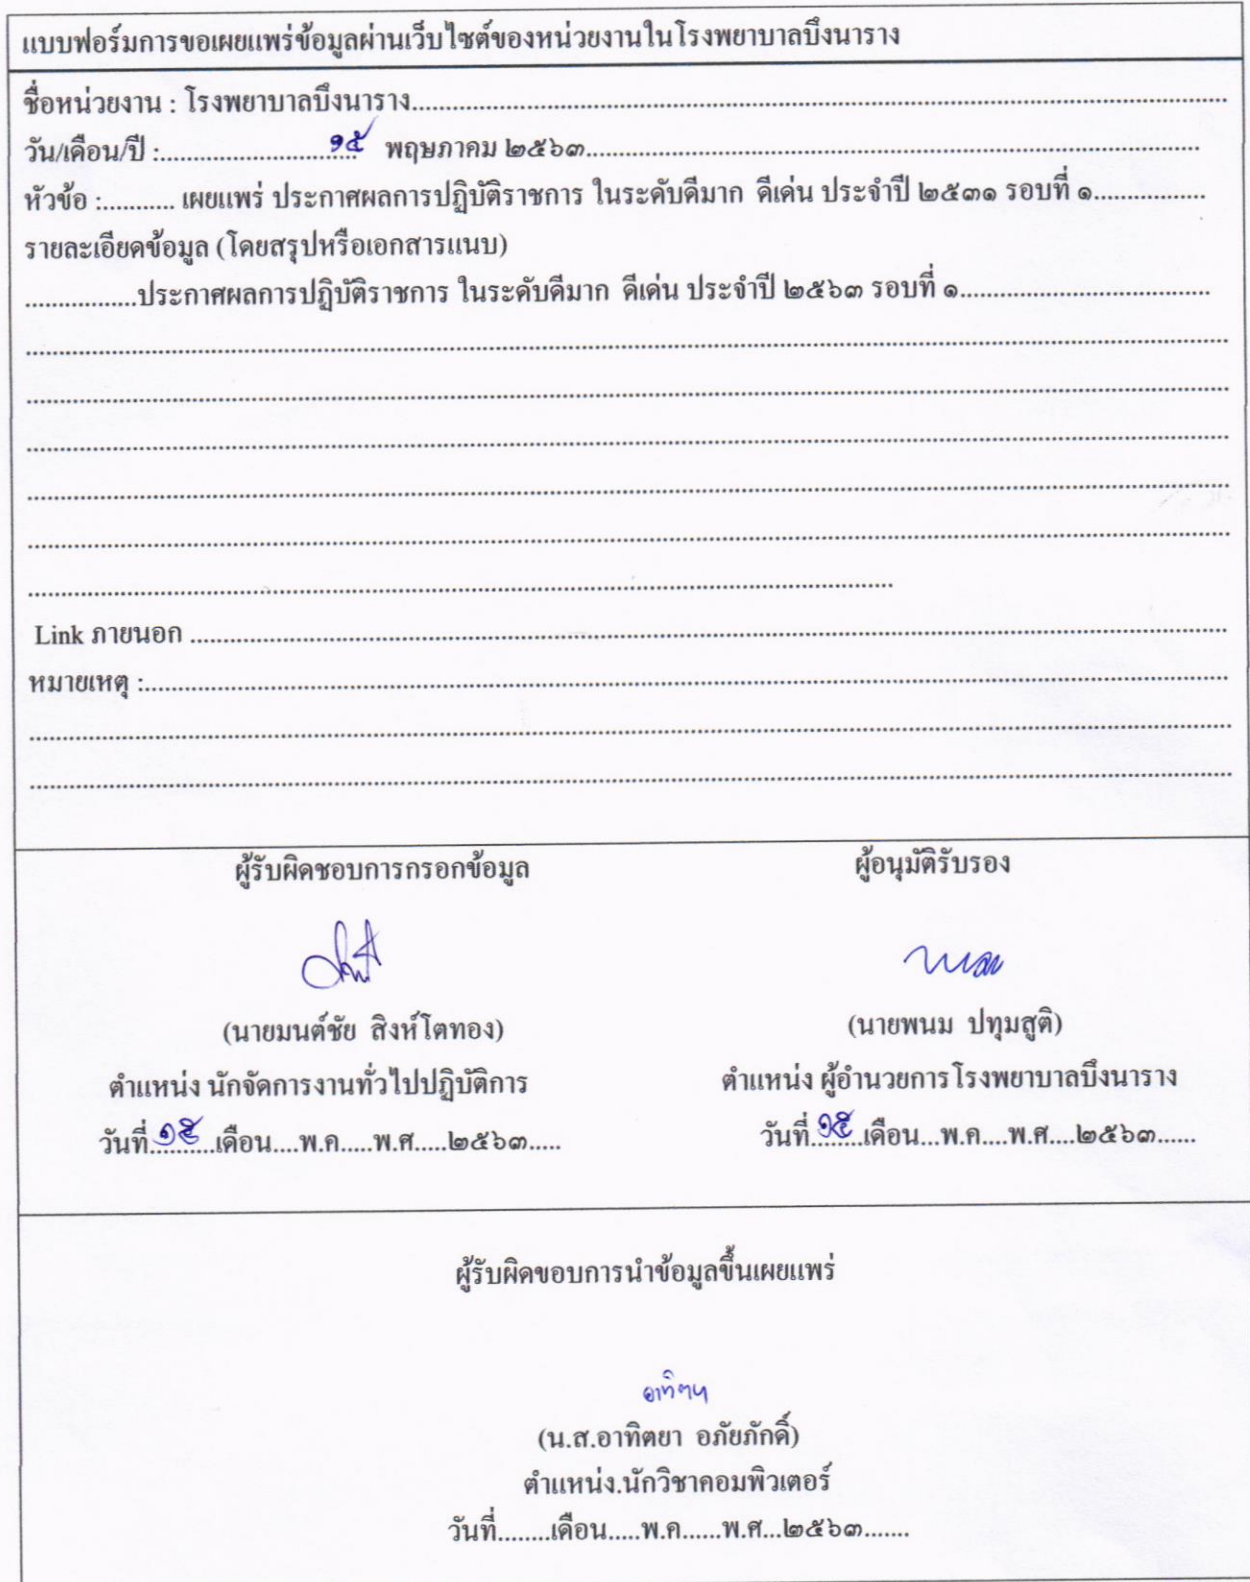 แบบฟอร์มการขอเผยแพร่ข้อมูลผ่านเว็บไซต์ของหน่วยงานในโรงพยาบาลบึงนาราง
ชื่อหน่วยงาน : โรงพยาบาลบึงนาราง....................
วัน/เดือน/ปี :....................๑๕ พฤษภาคม ๒๕๖๓....................
หัวข้อ :........... เผยแพร่ ประกาศผลการปฏิบัติราชการ ในระดับดีมาก ดีเด่น ประจำปี ๒๕๓๑ รอบที่ ๑.................
รายละเอียดข้อมูล (โดยสรุปหรือเอกสารแนบ)
.................ประกาศผลการปฏิบัติราชการ ในระดับดีมาก ดีเด่น ประจำปี ๒๕๖๓ รอบที่ ๑....................
Link ภายนอก ....................
หมายเหตุ :....................
ผู้รับผิดชอบการกรอกข้อมูล
(นายมนต์ชัย สิงห์โตทอง)
ตำแหน่ง นักจัดการงานทั่วไปปฏิบัติการ
วันที่..๑๕..เดือน....พ.ค.....พ.ศ.....๒๕๖๓.....
ผู้อนุมัติรับรอง
พนม
(นายพนม ปทุมสูติ)
ตำแหน่ง ผู้อำนวยการโรงพยาบาลบึงนาราง
วันที่..๑๕..เดือน...พ.ค....พ.ศ....๒๕๖๓......
ผู้รับผิดขอบการนำข้อมูลขึ้นเผยแพร่
อาทิตยา
(น.ส.อาทิตยา อภัยภักดิ์)
ตำแหน่ง.นักวิชาคอมพิวเตอร์
วันที่........เดือน.....พ.ค......พ.ศ...๒๕๖๓.......